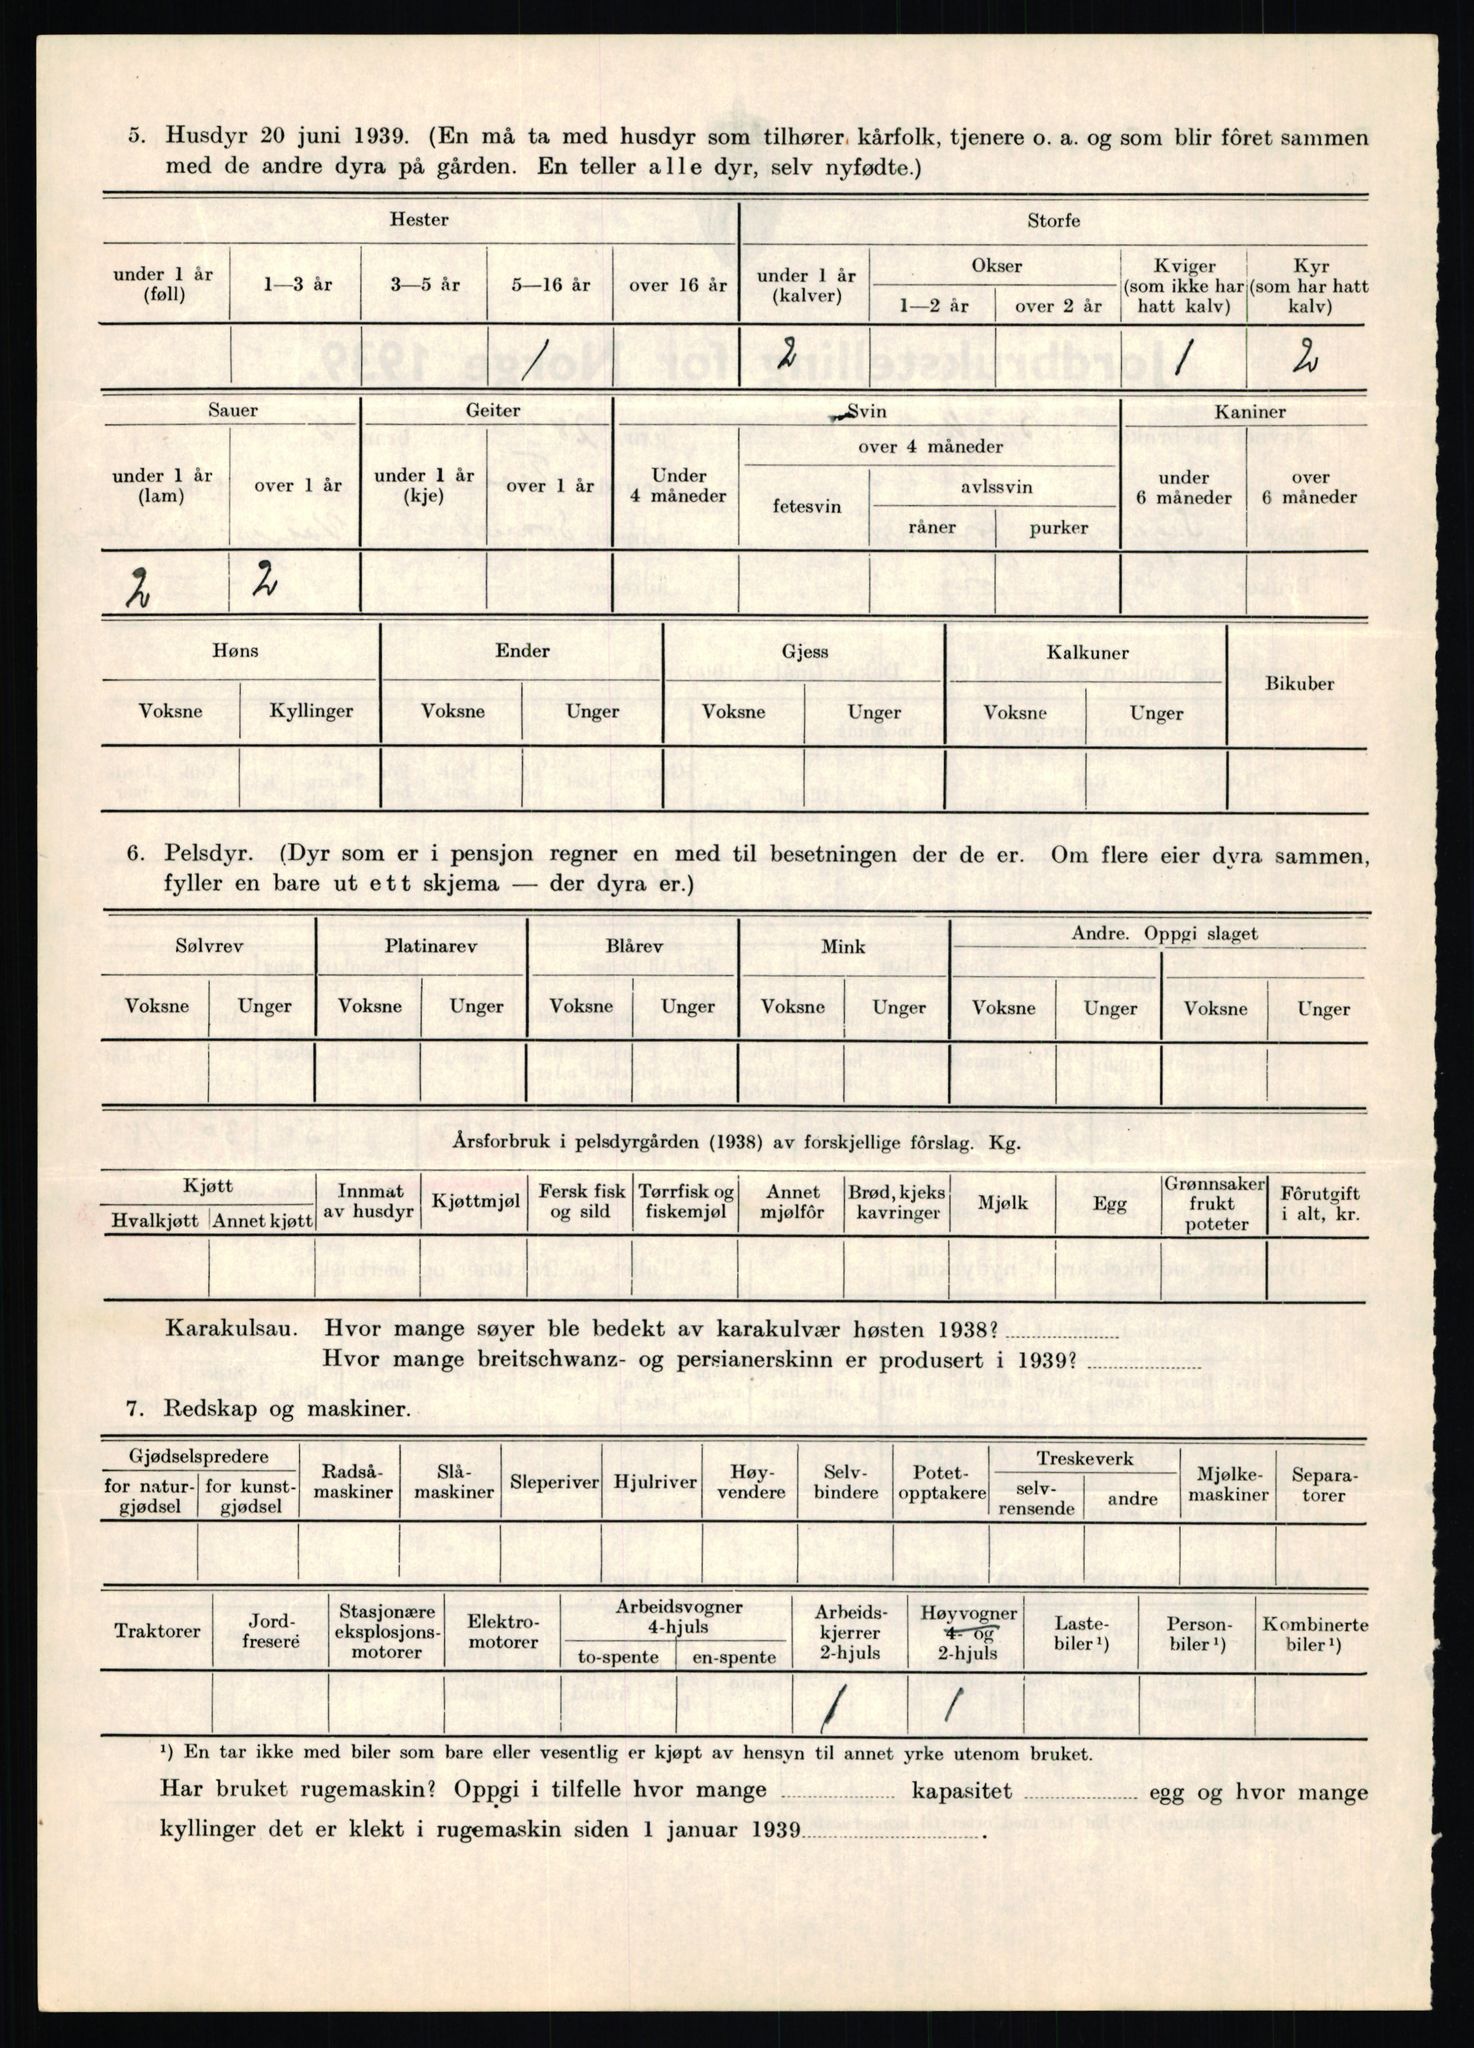 5. Husdyr 20 juni 1939. (En må ta med husdyr som tilhører kårfolk, tjenere o. a. og som blir fôret sammen
med de andre dyra på gården. En teller alle dyr, selv nyfødte.)
Hester Storfe
under 1 år (føll) 1—3 år 3—5 år 5—16 år over 16 år under 1 år (kalver) Okser 1—2 år over 2 år Kviger (som ikke har hatt kalv) Kyr (som har hatt kalv)
1 2 1 2
Sauer Geiter Svin Kaniner
under 1 år (lam) over 1 år under 1 år (kje) over 1 år Under 4 måneder over 4 måneder fetesvin avlssvin råner purker under 6 måneder over 6 måneder
2 2
Høns Ender Gjess Kalkuner Bikuber
Voksne Kyllinger Voksne Unger Voksne Unger Voksne Unger
6. Pelsdyr. (Dyr som er i pensjon regner en med til besetningen der de er. Om flere eier dyra sammen,
fyller en bare ut ett skjema — der dyra er.)
Sølvrev Platinarev Blårev Mink Andre. Oppgi slaget
Voksne Unger Voksne Unger Voksne Unger Voksne Unger Voksne Unger Voksne Unger
Årsforbruk i pelsdyrgården (1938) av forskjellige fôrslag. Kg.
Kjøtt Hvalkjøtt Annet kjøtt Innmat av husdyr Kjøttmjøl Fersk fisk og sild Tørrfisk og fiskemjøl Annet mjølfôr Brød, kjeks kavringer Mjølk Egg Grønnsaker frukt poteter Fôrutgift i alt, kr.
Karakulsau. Hvor mange søyer ble bedekt av karakulvær høsten 1938?
Hvor mange breitschwanz- og persianerskinn er produsert i 1939?
7. Redskap og maskiner.
Gjødselspredere for natur-gjødsel for kunst-gjødsel Radså-maskiner Slå-maskiner Sleperiver Hjulriver Høy-vendere Selv-bindere Potet-opptakere Treskeverk selv-rensende andre Mjølke-maskiner Separa-torer
Traktorer Jord-fresere Stasjonære eksplosjons-motorer Elektro-motorer Arbeidsvogner 4-hjuls to-spente en-spente Arbeids-kjerrer 2-hjuls Høyvogner 4- og 2-hjuls Laste-biler ¹) Person-biler ¹) Kombinerte biler ¹)
1 1
¹) En tar ikke med biler som bare eller vesentlig er kjøpt av hensyn til annet yrke utenom bruket.
Har bruket rugemaskin? Oppgi i tilfelle hvor mange kapasitet egg og hvor mange
kyllinger det er klekt i rugemaskin siden 1 januar 1939 .